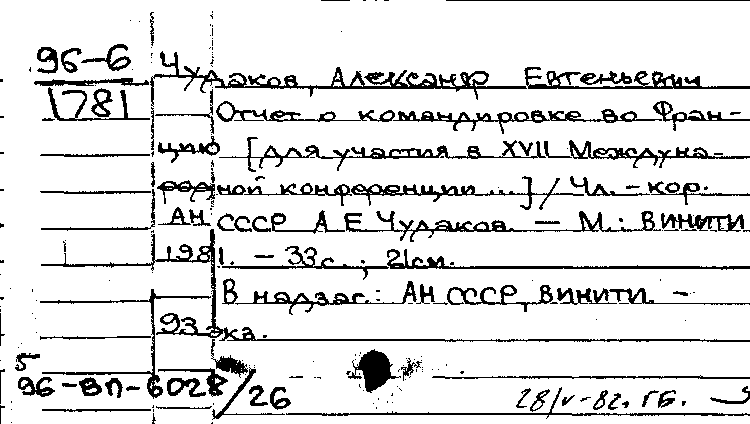 96-6
1781
Чудаков, Александр Евгеньевич
Отчет о командировке во Фран-
цию [для участия в XVII Междуна-
родной конференции ...] / Чл. - кор.
АН СССР А Е Чудаков. — М.: ВИНИТИ
1981. - 33с. ; 21см.
В надзаг.: АН СССР, ВИНИТИ. -
93 экз.
5
96-ВП-6028/26
28/V-82. ГБ.